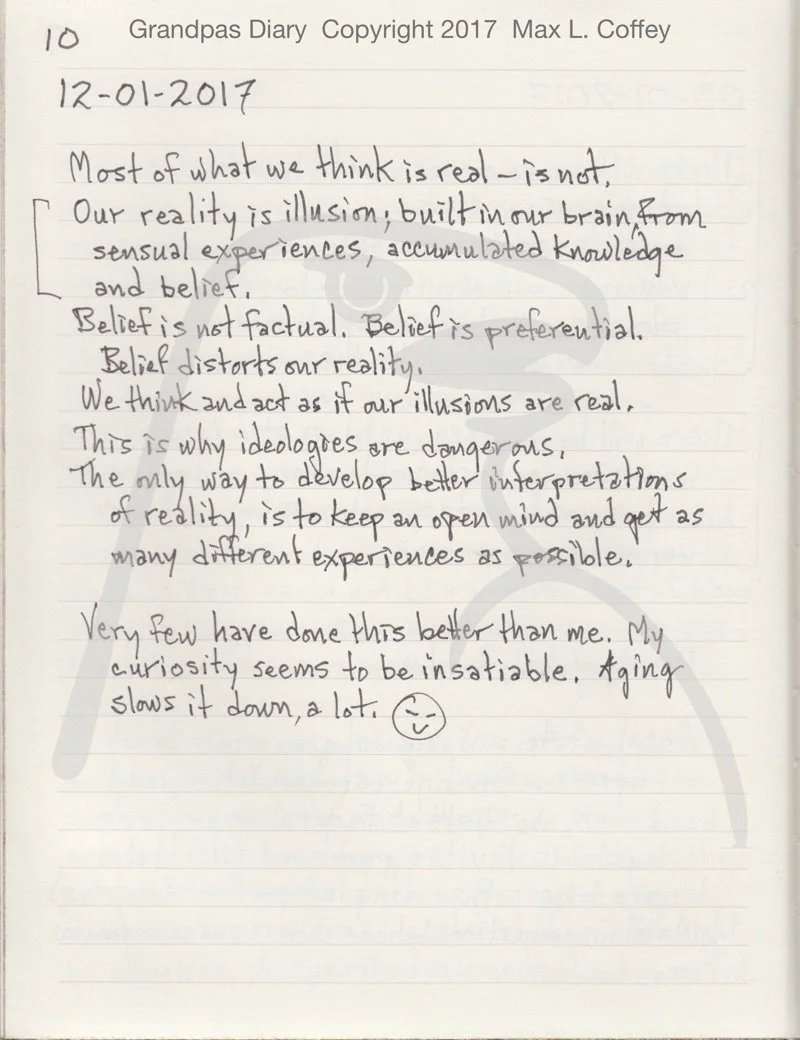 10
Grandpas Diary Copyright 2017 Max L. Coffey
12-01-2017
Most of what we think is real – is not.
Our reality is illusion; built in our brain, from
sensual experiences, accumulated knowledge
and belief.
Belief is not factual. Belief is preferential.
Belief distorts our reality.
We think and act as if our illusions are real.
This is why ideologies are dangerous.
The only way to develop better interpretations
of reality, is to keep an open mind and get as
many different experiences as possible.
Very few have done this better than me. My
curiosity seems to be insatiable. Aging
slows it down, a lot.